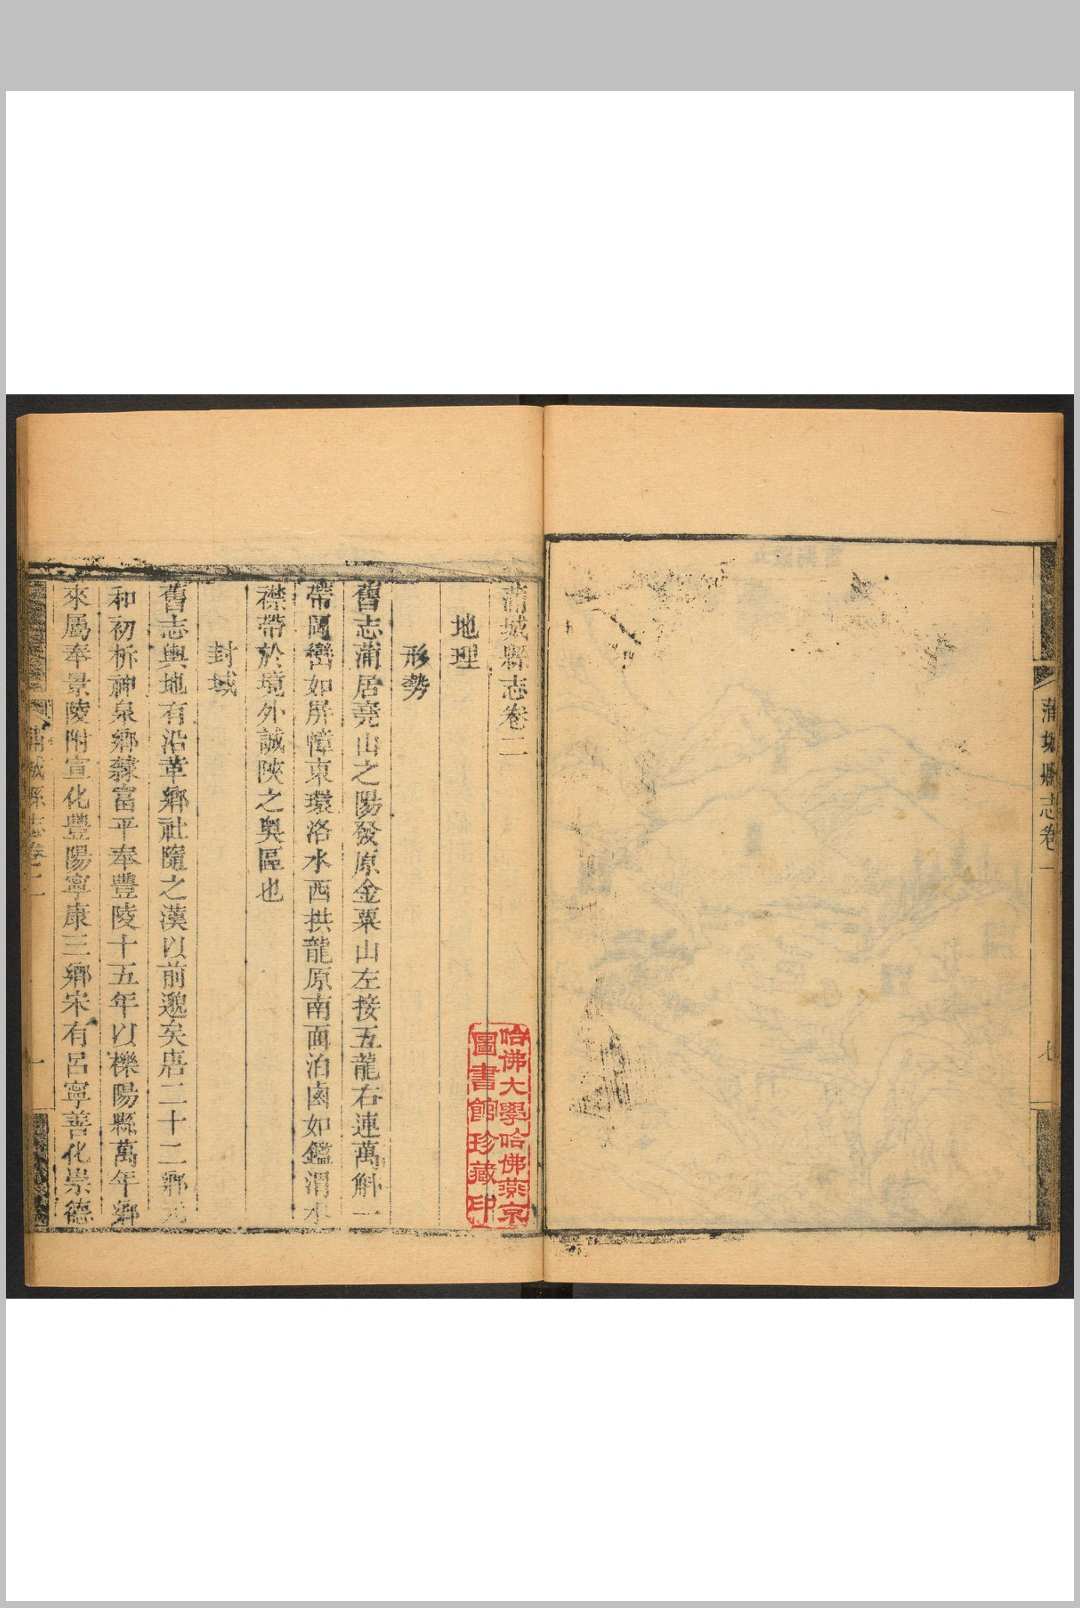 蒲城縣志卷一
七
蒲城縣志卷二
地理
形勢
舊志蒲居堯山之陽發原金粟山左接五龍右連萬斛一
帶岡巒如屏幛東環洛水西拱龍原南面泊鹵如鑑渭水
襟帶於境外誠陝之奧區也
封域
舊志輿地有沿革鄉社隨之漢以前邈矣唐二十二鄉元
和初析神泉鄉隸富平奉豐陵十五年以櫟陽縣萬年鄉
來屬奉景陵附宣化豐陽寧康三鄉宋有呂寧善化崇德
蒲城縣志卷二
一
哈佛大學哈佛燕京
圖書館珍藏印